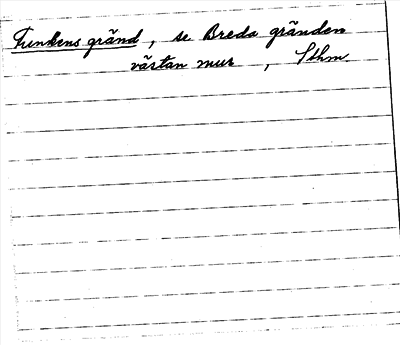 Funkens gränd, se Breda gränden
västan mur, Sthm